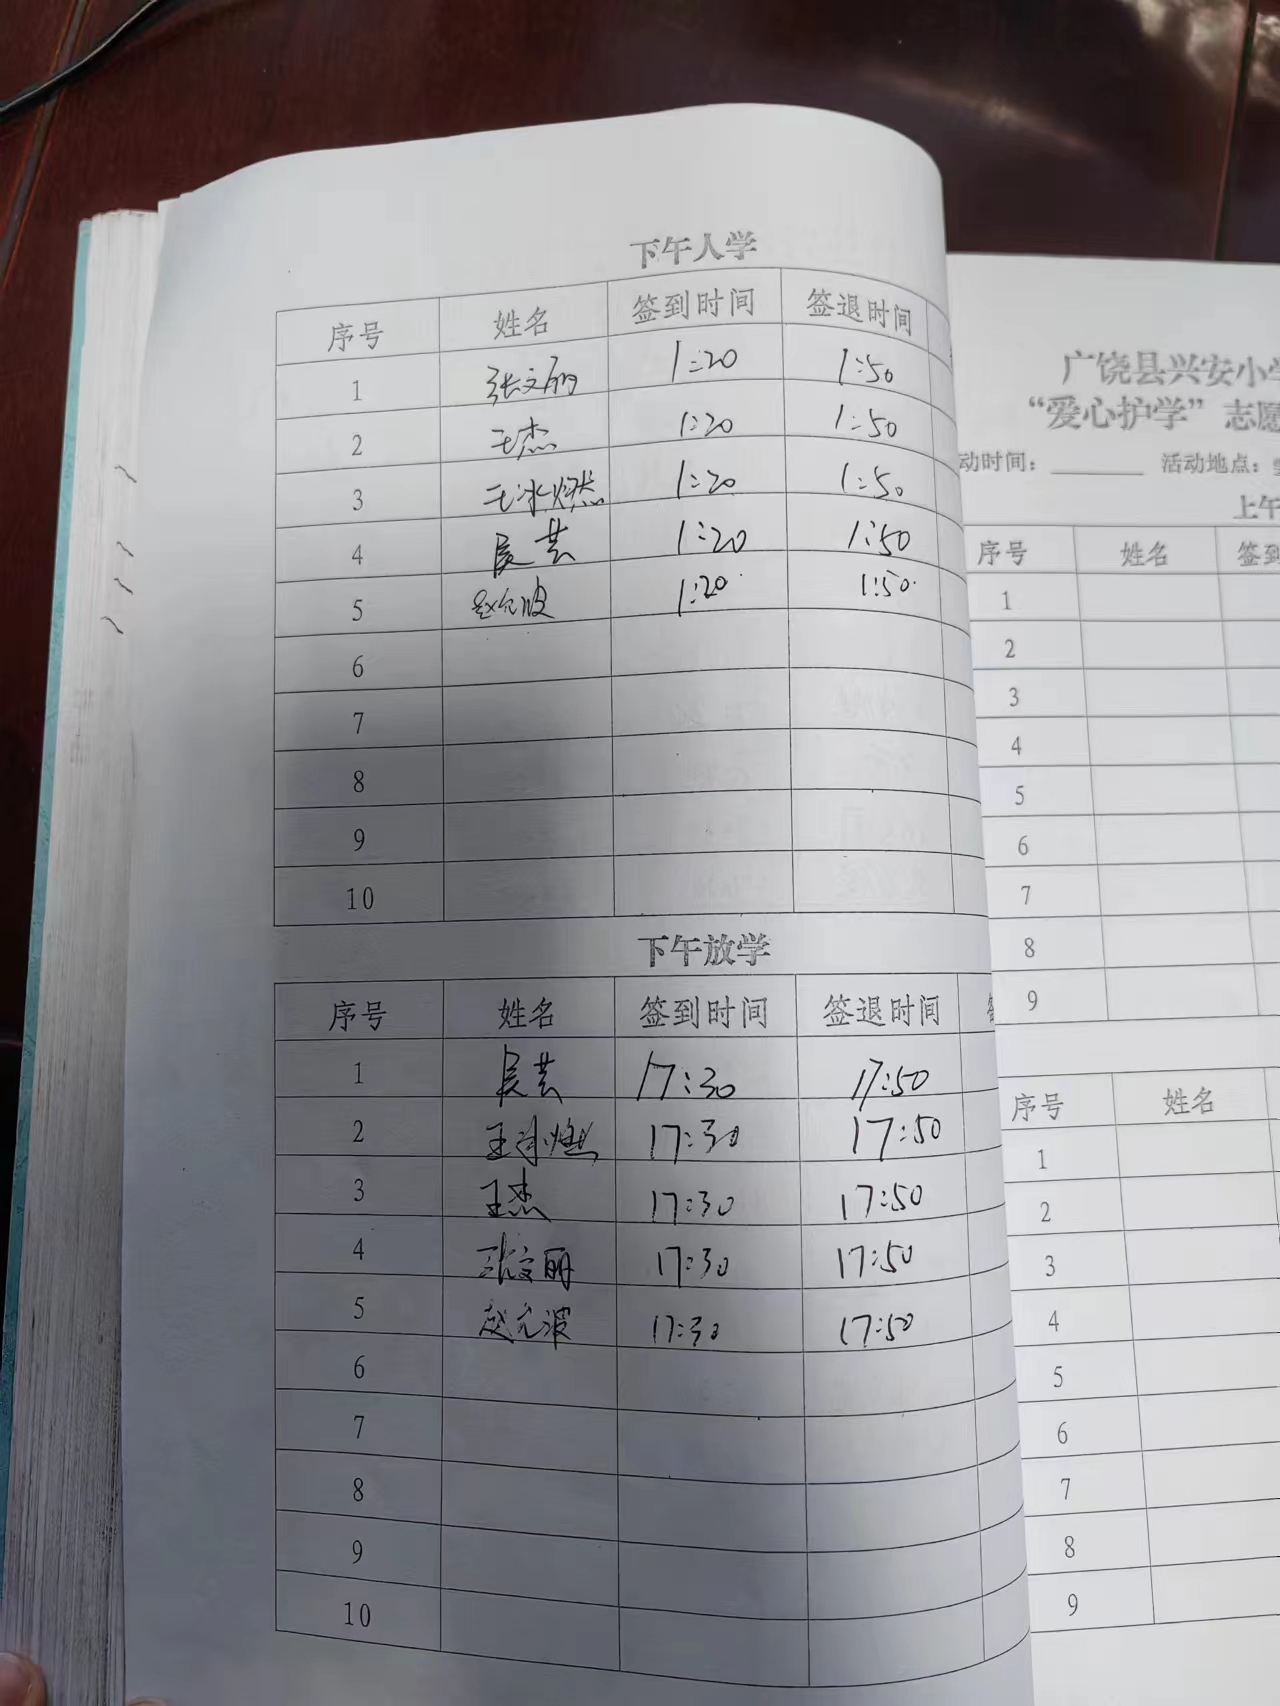 下午入学
序号 姓名 签到时间 签退时间
1 张文丽 1:20 1:50
2 王杰 1:20 1:50
3 王冰燃 1:20 1:50
4 1:20 1:50
5 1:20 1:50
6
7
8
9
10
下午放学
序号 姓名 签到时间 签退时间
1 17:30 17:50
2 王冰燃 17:30 17:50
3 王杰 17:30 17:50
4 张文丽 17:30 17:50
5 赵允波 17:30 17:50
6
7
8
9
10
广饶县兴安小学
“爱心护学”志愿
动时间： 活动地点：
上午
序号 姓名 签到
1
2
3
4
5
6
7
8
9
序号 姓名
1
2
3
4
5
6
7
8
9